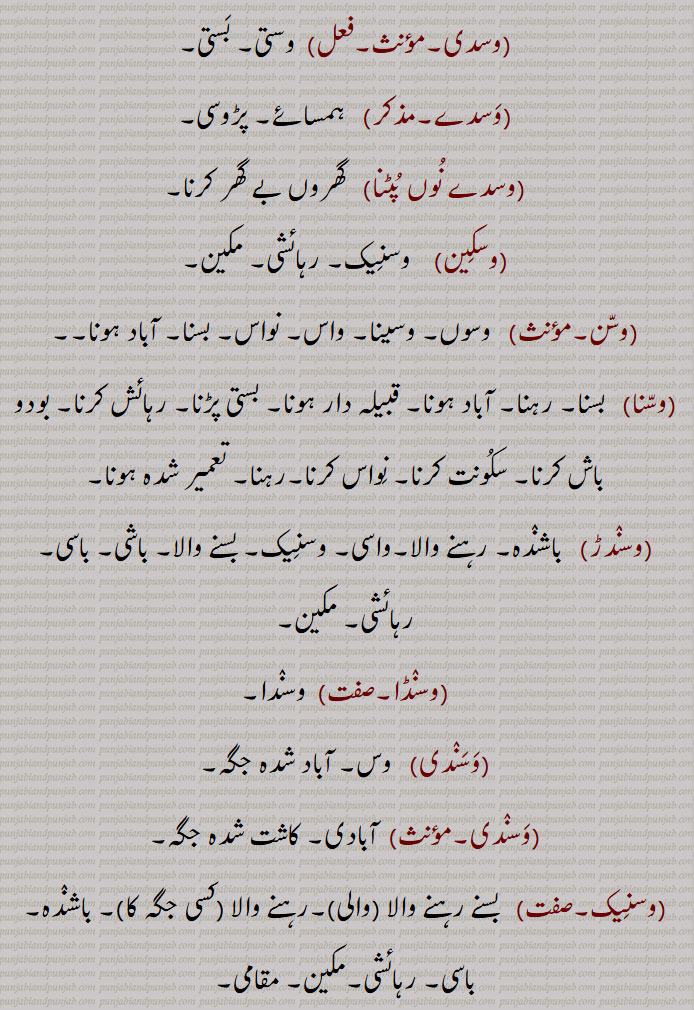 (وسدی۔مؤنث۔فعل) وستی۔ بَستی۔
(وَسدے۔مذکر) ہمسائے۔ پڑوسی۔
(وسدے نُوں پُٹنا) گھروں بے گھر کرنا۔
(وسکِین) وسنِیک۔ رہائشی۔ مکین۔
(وسّن۔مؤنث) وسوں۔ وسینا۔ واس۔ نواس۔ بسنا۔ آباد ہونا۔۔
(وسّنا) بسنا۔ رہنا۔ آباد ہونا۔ قبیلہ دار ہونا۔ بستی پڑنا۔ رہائش کرنا۔ بودو
باش کرنا۔ سکُونت کرنا۔ نِواس کرنا۔رہنا۔ تعمیر شدہ ہونا۔
(وسن٘دڑ) باشن٘دہ۔ رہنے والا۔واسی۔ وسنِیک۔بسنے والا۔ باشی۔ باسی۔
رہائشی۔ مکین۔
(وسن٘ڈا۔صفت) وسن٘دا۔
(وَسَن٘دی) وس۔ آباد شدہ جگہ۔
(وَسن٘دی۔مؤنث) آبادی۔ کاشت شدہ جگہ۔
(وسنِیک۔صفت) بسنے رہنے والا (والی)۔رہنے والا (کسی جگہ کا)۔ باشن٘دہ۔
باسی۔ رہائشی۔مکین۔ مقامی۔